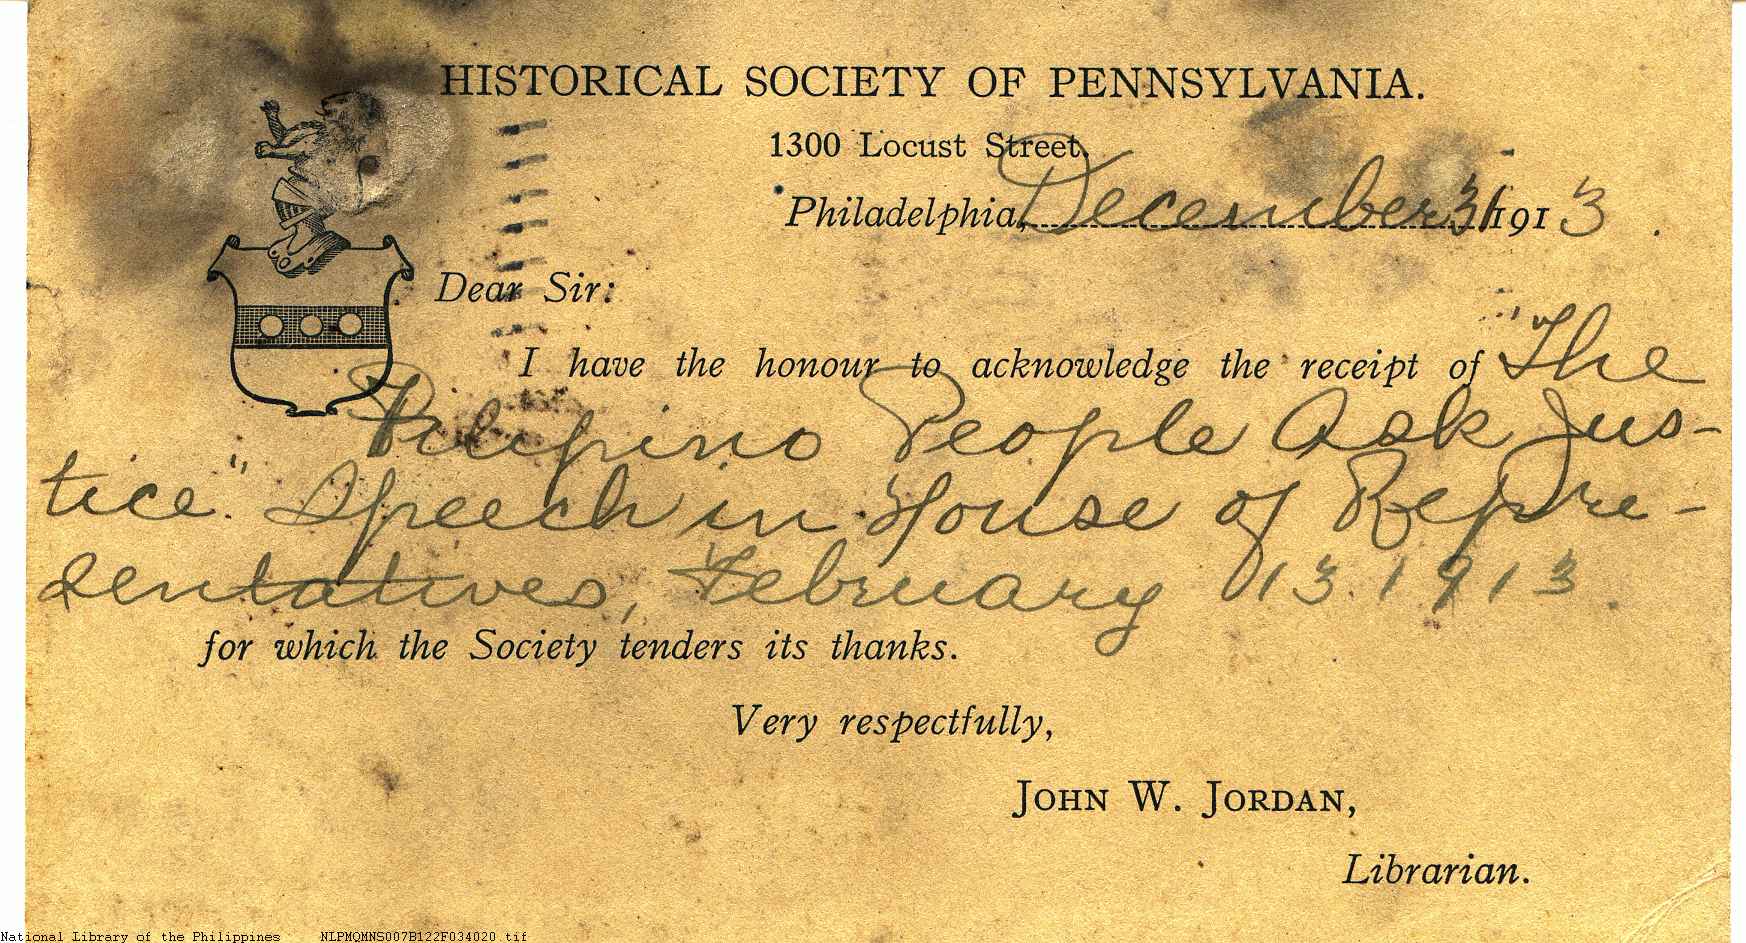 HISTORICAL SOCIETY OF PENNSYLVANIA.
1300 Locust Street.
Philadelphia, December 31 1913.
Dear Sir:
I have the honour to acknowledge the receipt of "The
Filipino People Ask Jus-
tice." Speech in House of Repre-
sentatives, February 13. 1913.
for which the Society tenders its thanks.
Very respectfully,
JOHN W. JORDAN,
Librarian.
National Library of the Philippines NLPMQMNS007B122F034020.tif